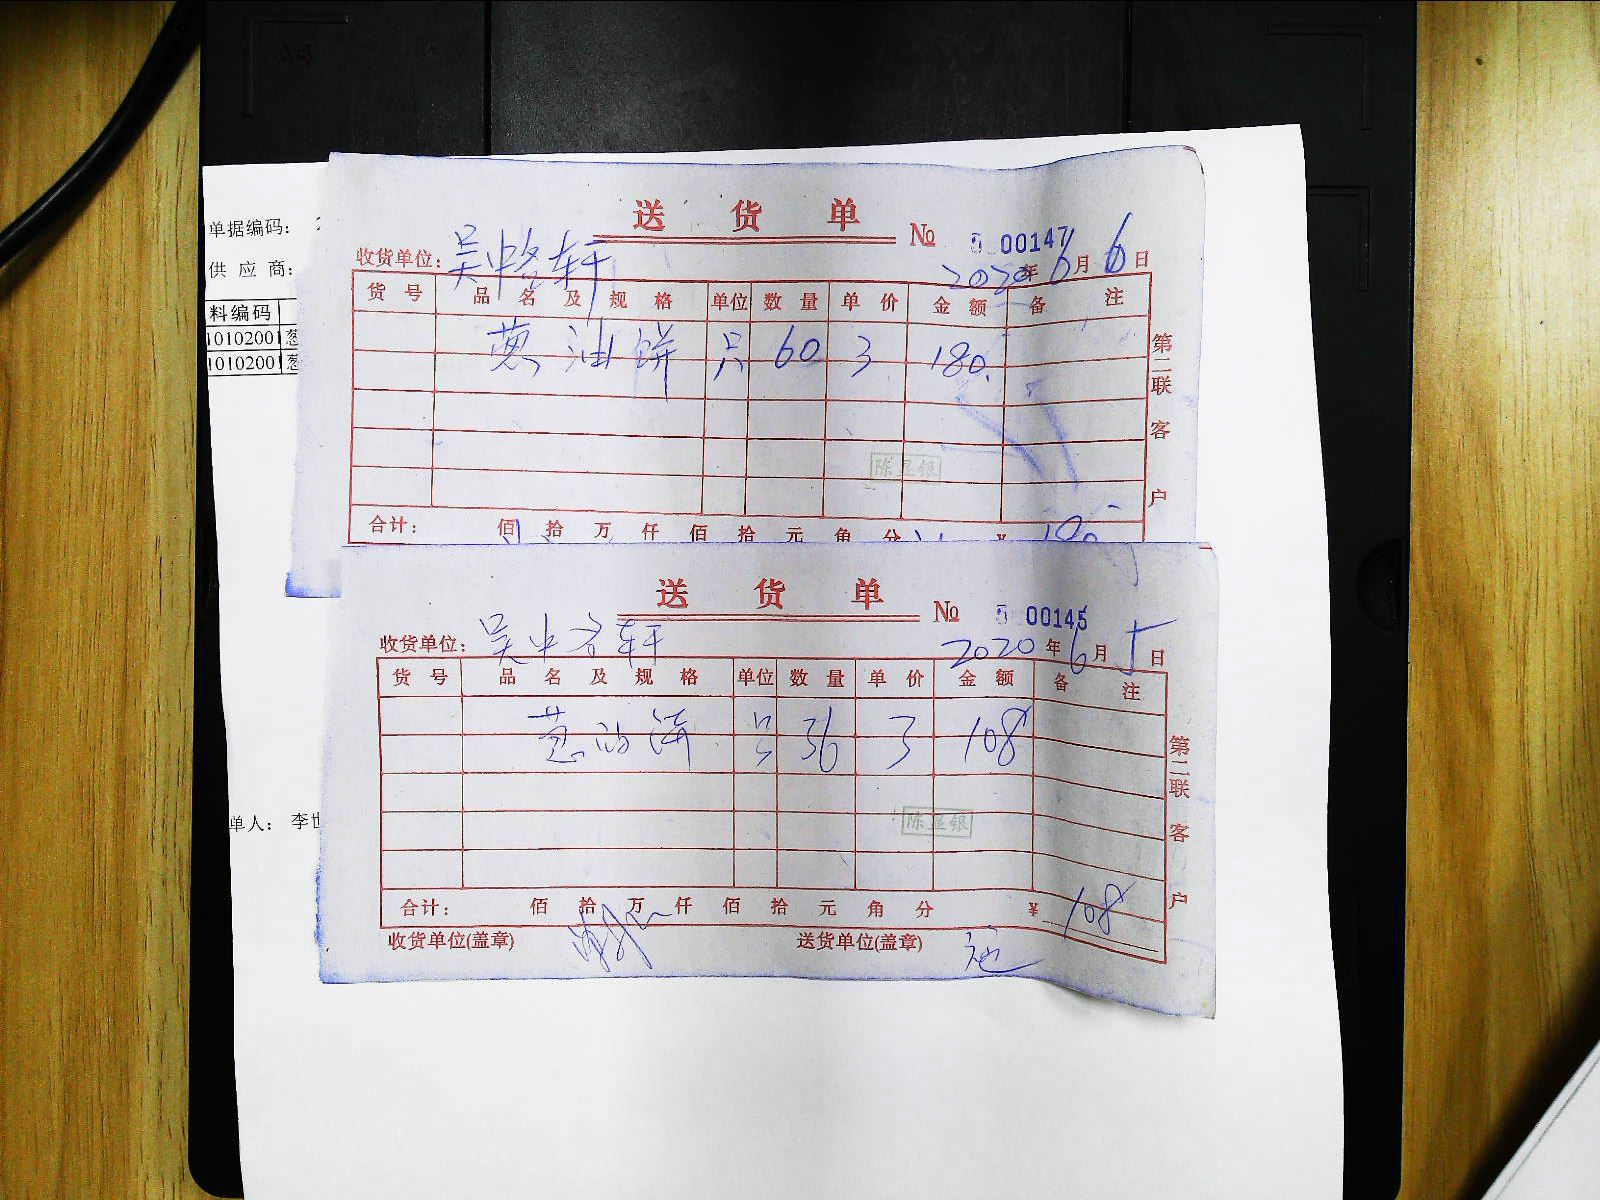 单据编码：
供 应 商：
料编码
10102001 葱
10102001 葱
单人： 李世
送 货 单
№ 00147
收货单位： 吴中 轩
2020年6月6日
货 号 品 名 及 规 格 单位 数 量 单 价 金 额 备 注
葱油饼 只 60 3 180.
陈 银
第二联 客 户
合计： 佰 拾 万 仟 佰 拾 元 角 分 ¥
送 货 单
№ 00145
收货单位： 吴中 轩
2020年6月5日
货 号 品 名 及 规 格 单位 数 量 单 价 金 额 备 注
葱油饼 只 36 3 108
陈 银
第二联 客 户
合计： 佰 拾 万 仟 佰 拾 元 角 分 ¥ 108
收货单位(盖章) 送货单位(盖章)